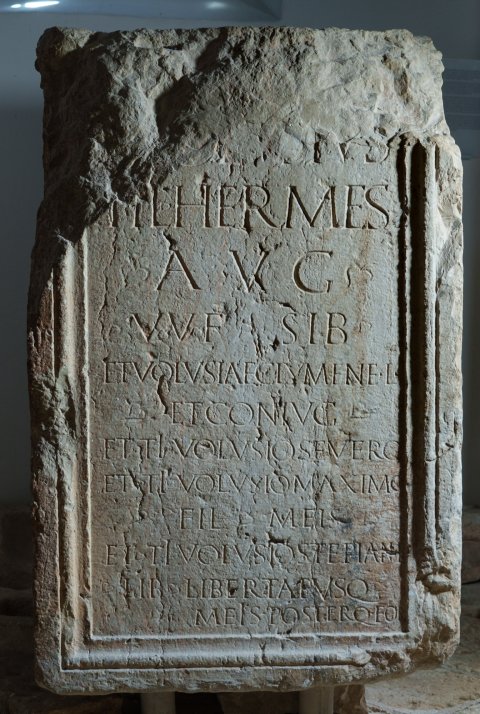 SIVS
HERMES
AVG
V V F SIB
ET VOLVSIAE CLYMENE L
ET CONIVG
ET TI VOLVSIO SEVERO
ET TI VOLVSIO MAXIMO
FIL MEIS
ET TI VOLVSIO STEPHAN
LIB LIBERTABVSQ
MEIS POSTERQ EO